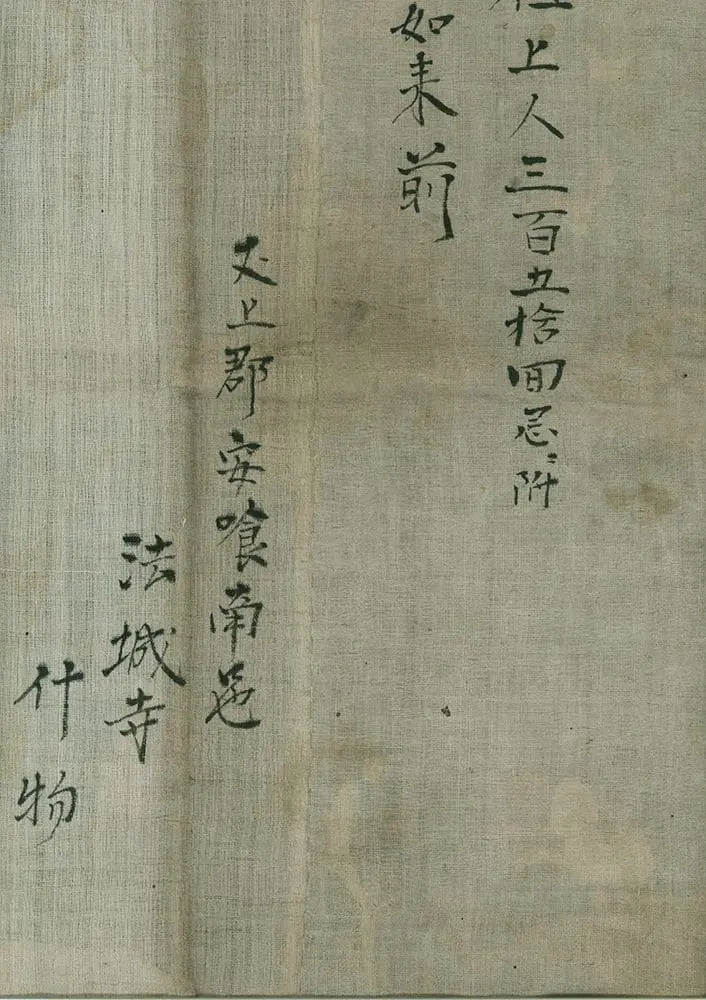 上人三百五拾回忌ニ附
如来前
犬上郡安喰南邑
法城寺
什物